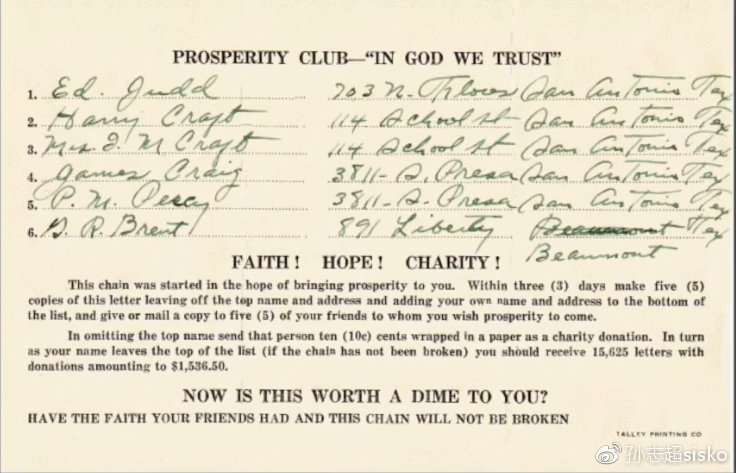 PROSPERITY CLUB—"IN GOD WE TRUST"
1. Ed. Judd 703 N. Flores San Antonio Tex
2. Harry Craft 114 School St San Antonio Tex
3. Mrs. J. M Craft 114 School St San Antonio Tex
4. James Craig 3811-S. Presa San Antonio Tex
5. P. M. Percy 3811-S. Presa San Antonio Tex
6. G. R. Brent 891 Liberty Beaumont Tex
Beaumont
FAITH! HOPE! CHARITY!
This chain was started in the hope of bringing prosperity to you. Within three (3) days make five (5)
copies of this letter leaving off the top name and address and adding your own name and address to the bottom of
the list, and give or mail a copy to five (5) of your friends to whom you wish prosperity to come.
In omitting the top name send that person ten (10c) cents wrapped in a paper as a charity donation. In turn
as your name leaves the top of the list (if the chain has not been broken) you should receive 15,625 letters with
donations amounting to $1,536.50.
NOW IS THIS WORTH A DIME TO YOU?
HAVE THE FAITH YOUR FRIENDS HAD AND THIS CHAIN WILL NOT BE BROKEN
TALLEY PRINTING CO
孙志超sisko